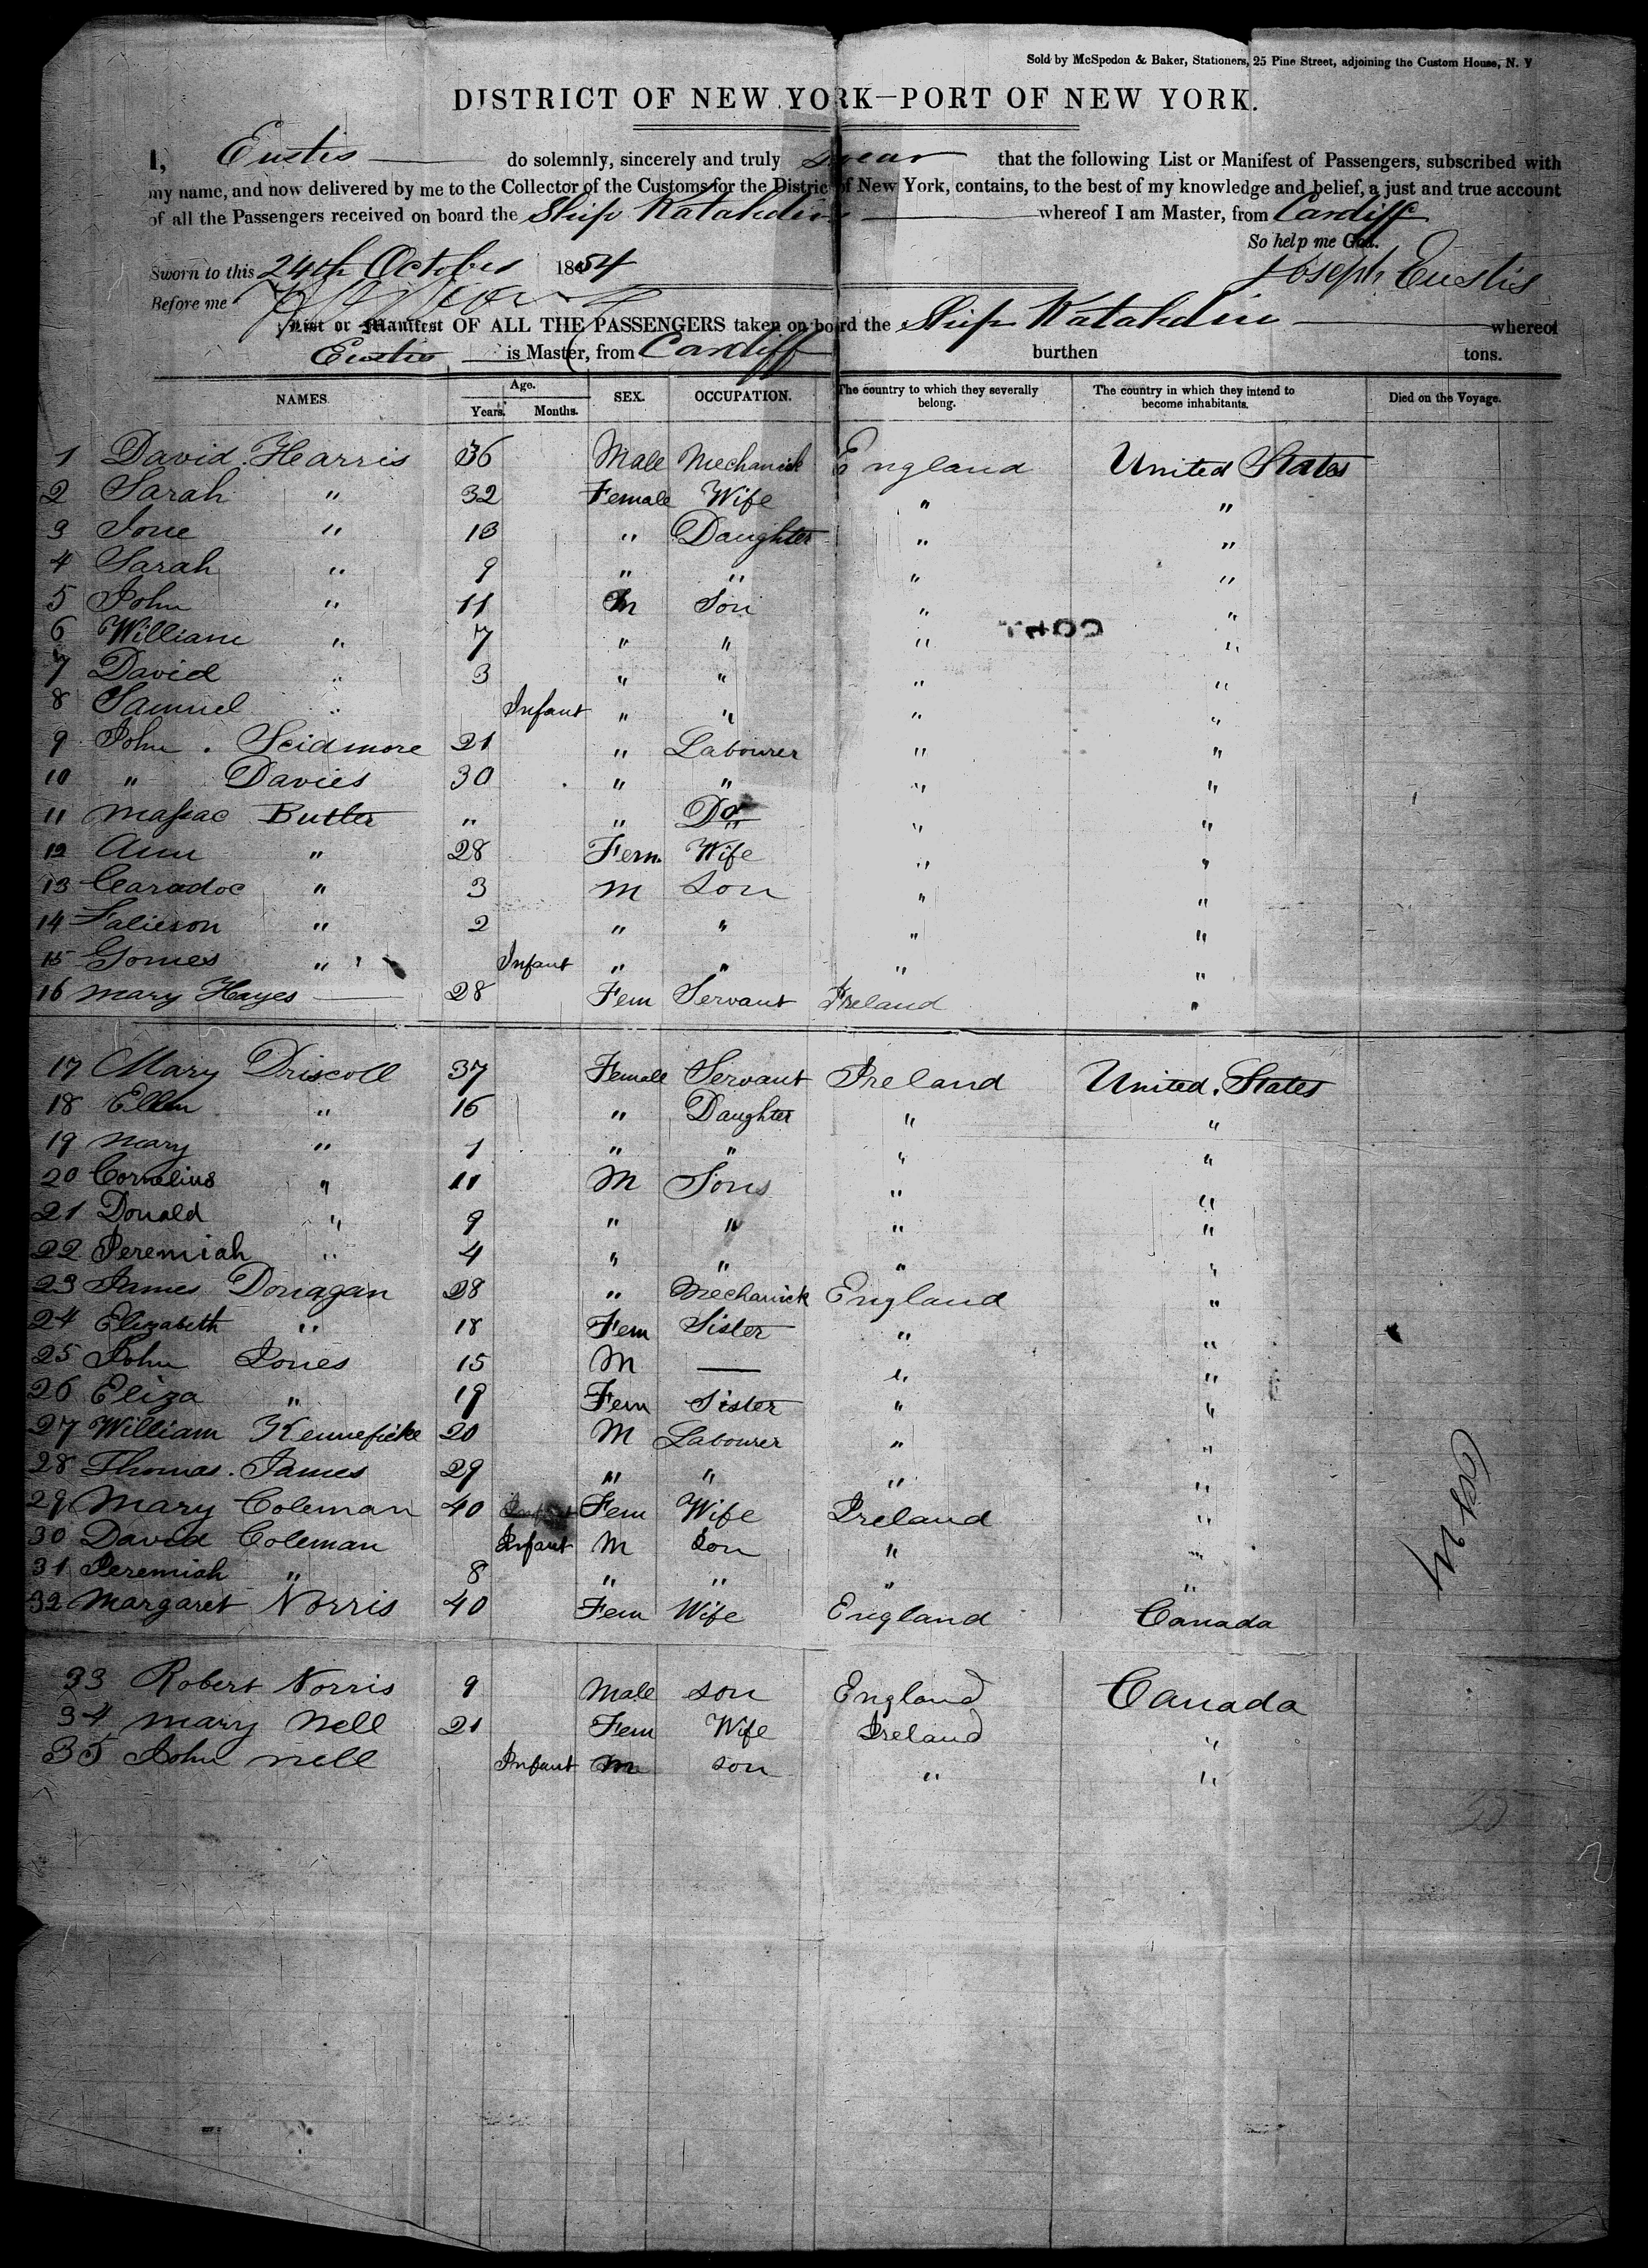 Sold by McSpedon & Baker, Stationers, 25 Pine Street, adjoining the Custom House, N. Y
DISTRICT OF NEW YORK—PORT OF NEW YORK.
I, Eustis do solemnly, sincerely and truly swear that the following List or Manifest of Passengers, subscribed with
my name, and now delivered by me to the Collector of the Customs for the District of New York, contains, to the best of my knowledge and belief, a just and true account
of all the Passengers received on board the Ship Katahdin whereof I am Master, from Cardiff
So help me God.
Sworn to this 24th October 1854 Joseph Eustis
Before me
List or Manifest OF ALL THE PASSENGERS taken on board the Ship Katahdin whereof
Eustis is Master, from Cardiff burthen tons.
NAMES. Age. Years. Months. SEX. OCCUPATION. The country to which they severally belong. The country in which they intend to become inhabitants. Died on the Voyage.
1 David Harris 36 Male Mechanick England United States
2 Sarah " 32 Female Wife " "
3 " 13 " Daughter " "
4 Sarah " 9 " " " "
5 John " 11 M Son " "
6 William " 7 " " " "
7 David " 3 " " " "
8 Samuel " Infant " " " "
9 John Scidmore 21 " Labourer " "
10 " Davies 30 " " " "
11 Butler " " Do " "
12 Ann " 28 Fem. Wife " "
13 Caradoc " 3 M Son " "
14 " 2 " " " "
15 Gomes " Infant " " " "
16 Mary Hayes 28 Fem Servant Ireland "
17 Mary Driscoll 37 Female Servant Ireland United States
18 Ellen " 16 " Daughter " "
19 Mary " 1 " " " "
20 Cornelius " 11 M Sons " "
21 Donald " 9 " " " "
22 Jeremiah " 4 " " " "
23 James Donagan 28 " Mechanick England "
24 Elizabeth " 18 Fem Sister " "
25 John Jones 15 M — " "
26 Eliza " 19 Fem Sister " "
27 William Kenneficke 20 M Labourer " "
28 Thomas James 29 " " " "
29 Mary Coleman 40 Fem Wife Ireland "
30 David Coleman Infant M Son " "
31 Jeremiah " 8 " " " "
32 Margaret Norris 40 Fem Wife England Canada
33 Robert Norris 9 Male Son England Canada
34 Mary Nell 21 Fem Wife Ireland "
35 John Nell Infant M Son " "
Oct 24
35